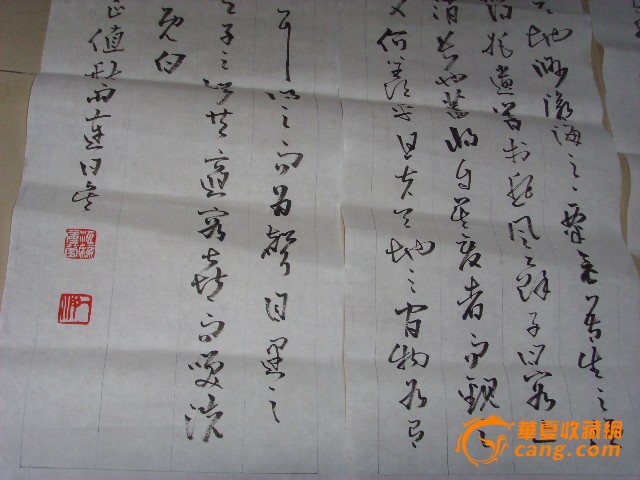 天地渺滄海之一粟哀吾生之
得托遺響於悲風蘇子曰客
消長也蓋將自其變者而觀之
又何羨乎且夫天地之間物各有
耳得之而為聲目遇之
與子之所共適客喜而笑洗
既白
正值
華夏收藏網
cang.com